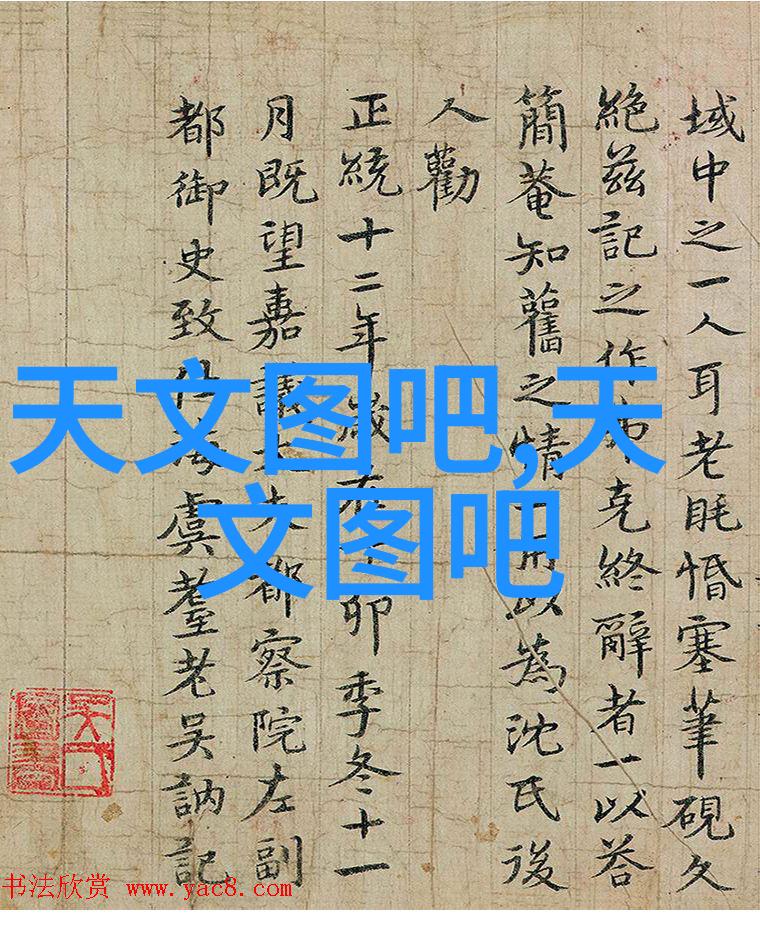 域中之一人耳老眊惛塞筆硯久
絶茲記之作弗克終辭者一以荅
簡菴知舊之情一用以為沈氏後
人勸
正統十二年歲在丁卯季冬十一
月既望嘉議大夫都察院左副
都御史致仕海虞耋老吳訥記
天文图吧,天
文图吧
书法欣赏 www.yac8.com